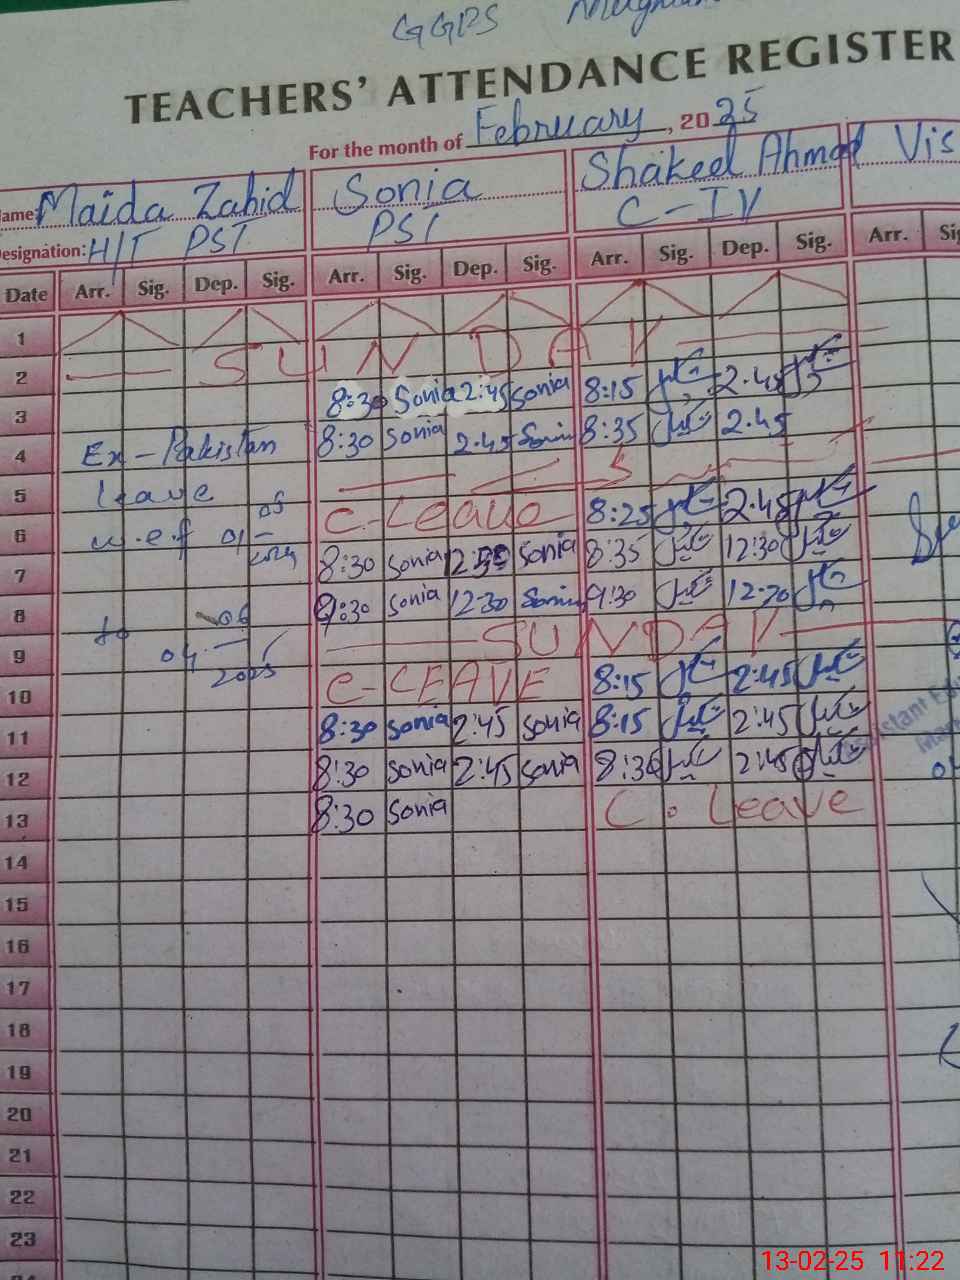 GGPS
TEACHERS' ATTENDANCE REGISTER
For the month of February, 2025
Name: Maida Zahid Sonia Shakeel Ahmad Vis
Designation: H/T PST PST C-IV
Date Arr. Sig. Dep. Sig. Arr. Sig. Dep. Sig. Arr. Sig. Dep. Sig. Arr. Sig
1
2 SUNDAY
3 8:30 Sonia 2:45 Sonia 8:15 2.45
4 Ex-Pakistan 8:30 Sonia 2.45 Sonia 8:35 2.45
5 leave
6 w.e.f 01 C-Leave 8:25 2.45
7 8:30 Sonia Sonia 8:35 12:30
8 to 06 9:30 Sonia 12:30 Sonia 9:30 12:30
9 04 SUNDAY
10 2025 C-LEAVE 8:15 2:45
11 8:30 Sonia 2:45 Sonia 8:15 2:45
12 8:30 Sonia 2:45 Sonia 8:30 2:45
13 8:30 Sonia C. Leave
14
15
16
17
18
19
20
21
22
23
13-02-25 11:22